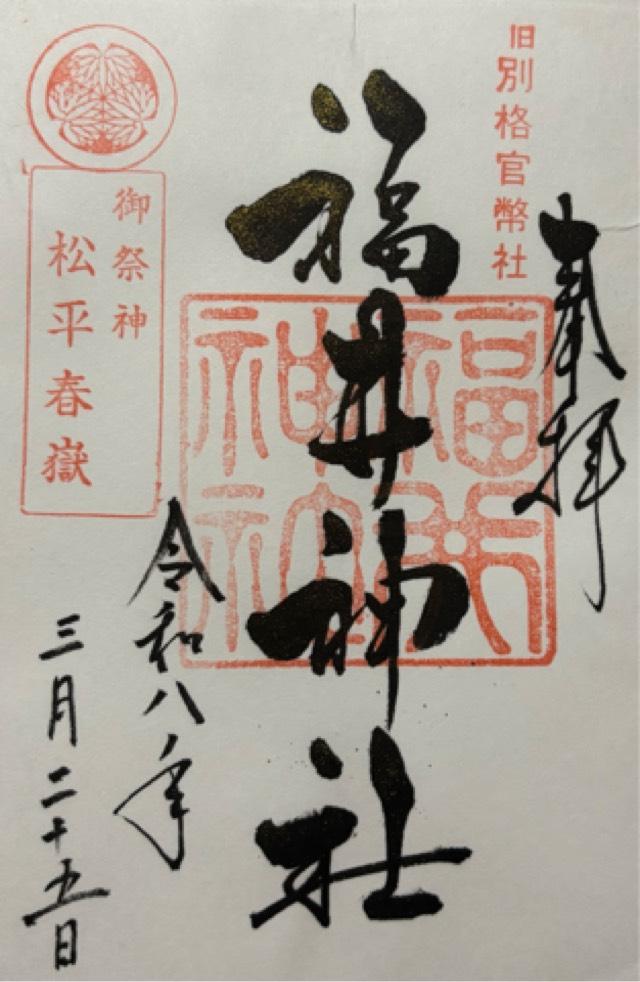 旧別格官幣社
奉拝
福井神社
福井神社
御祭神
松平春嶽
令和八年
三月二十五日